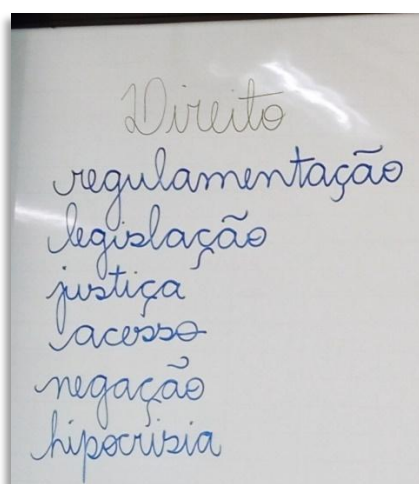 Direito
regulamentação
legislação
justiça
acesso
negação
hipocrisia